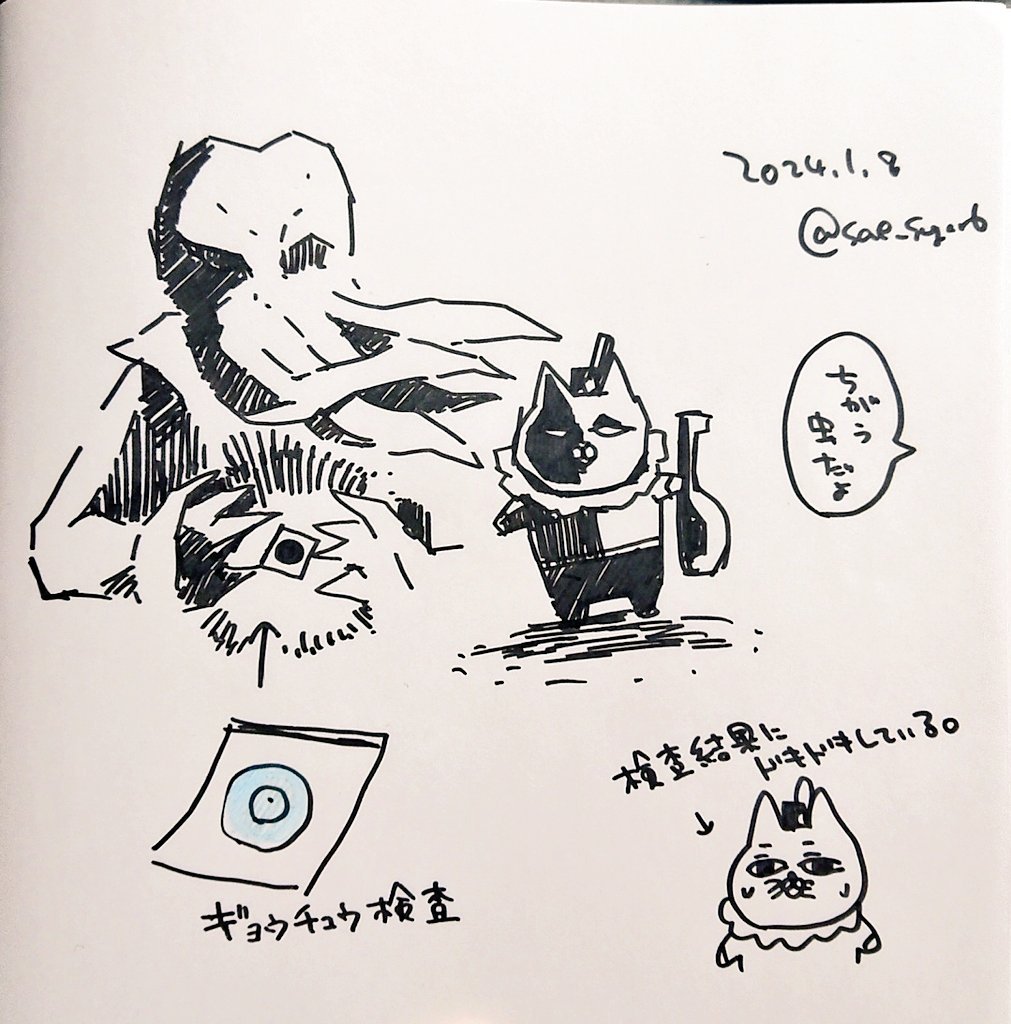 2024.1.8
ちがう
虫だよ
検査結果に
ドキドキしている。
ギョウチュウ検査